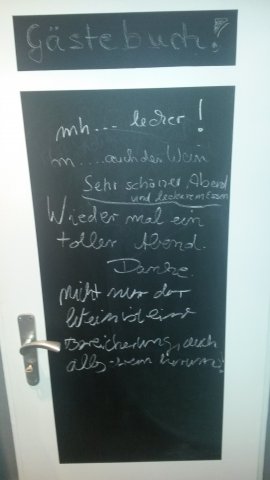 Gästebuch!
mh... lecker!
hm....auch der Wein
Sehr schöner Abend
und leckeres Essen
Wieder mal ein
toller Abend.
Danke.
Nicht nur der
Wein ist eine
Bereicherung, auch